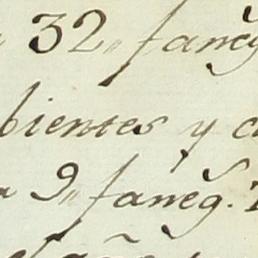 32,, faneg
bientes y c
9,, faneg.